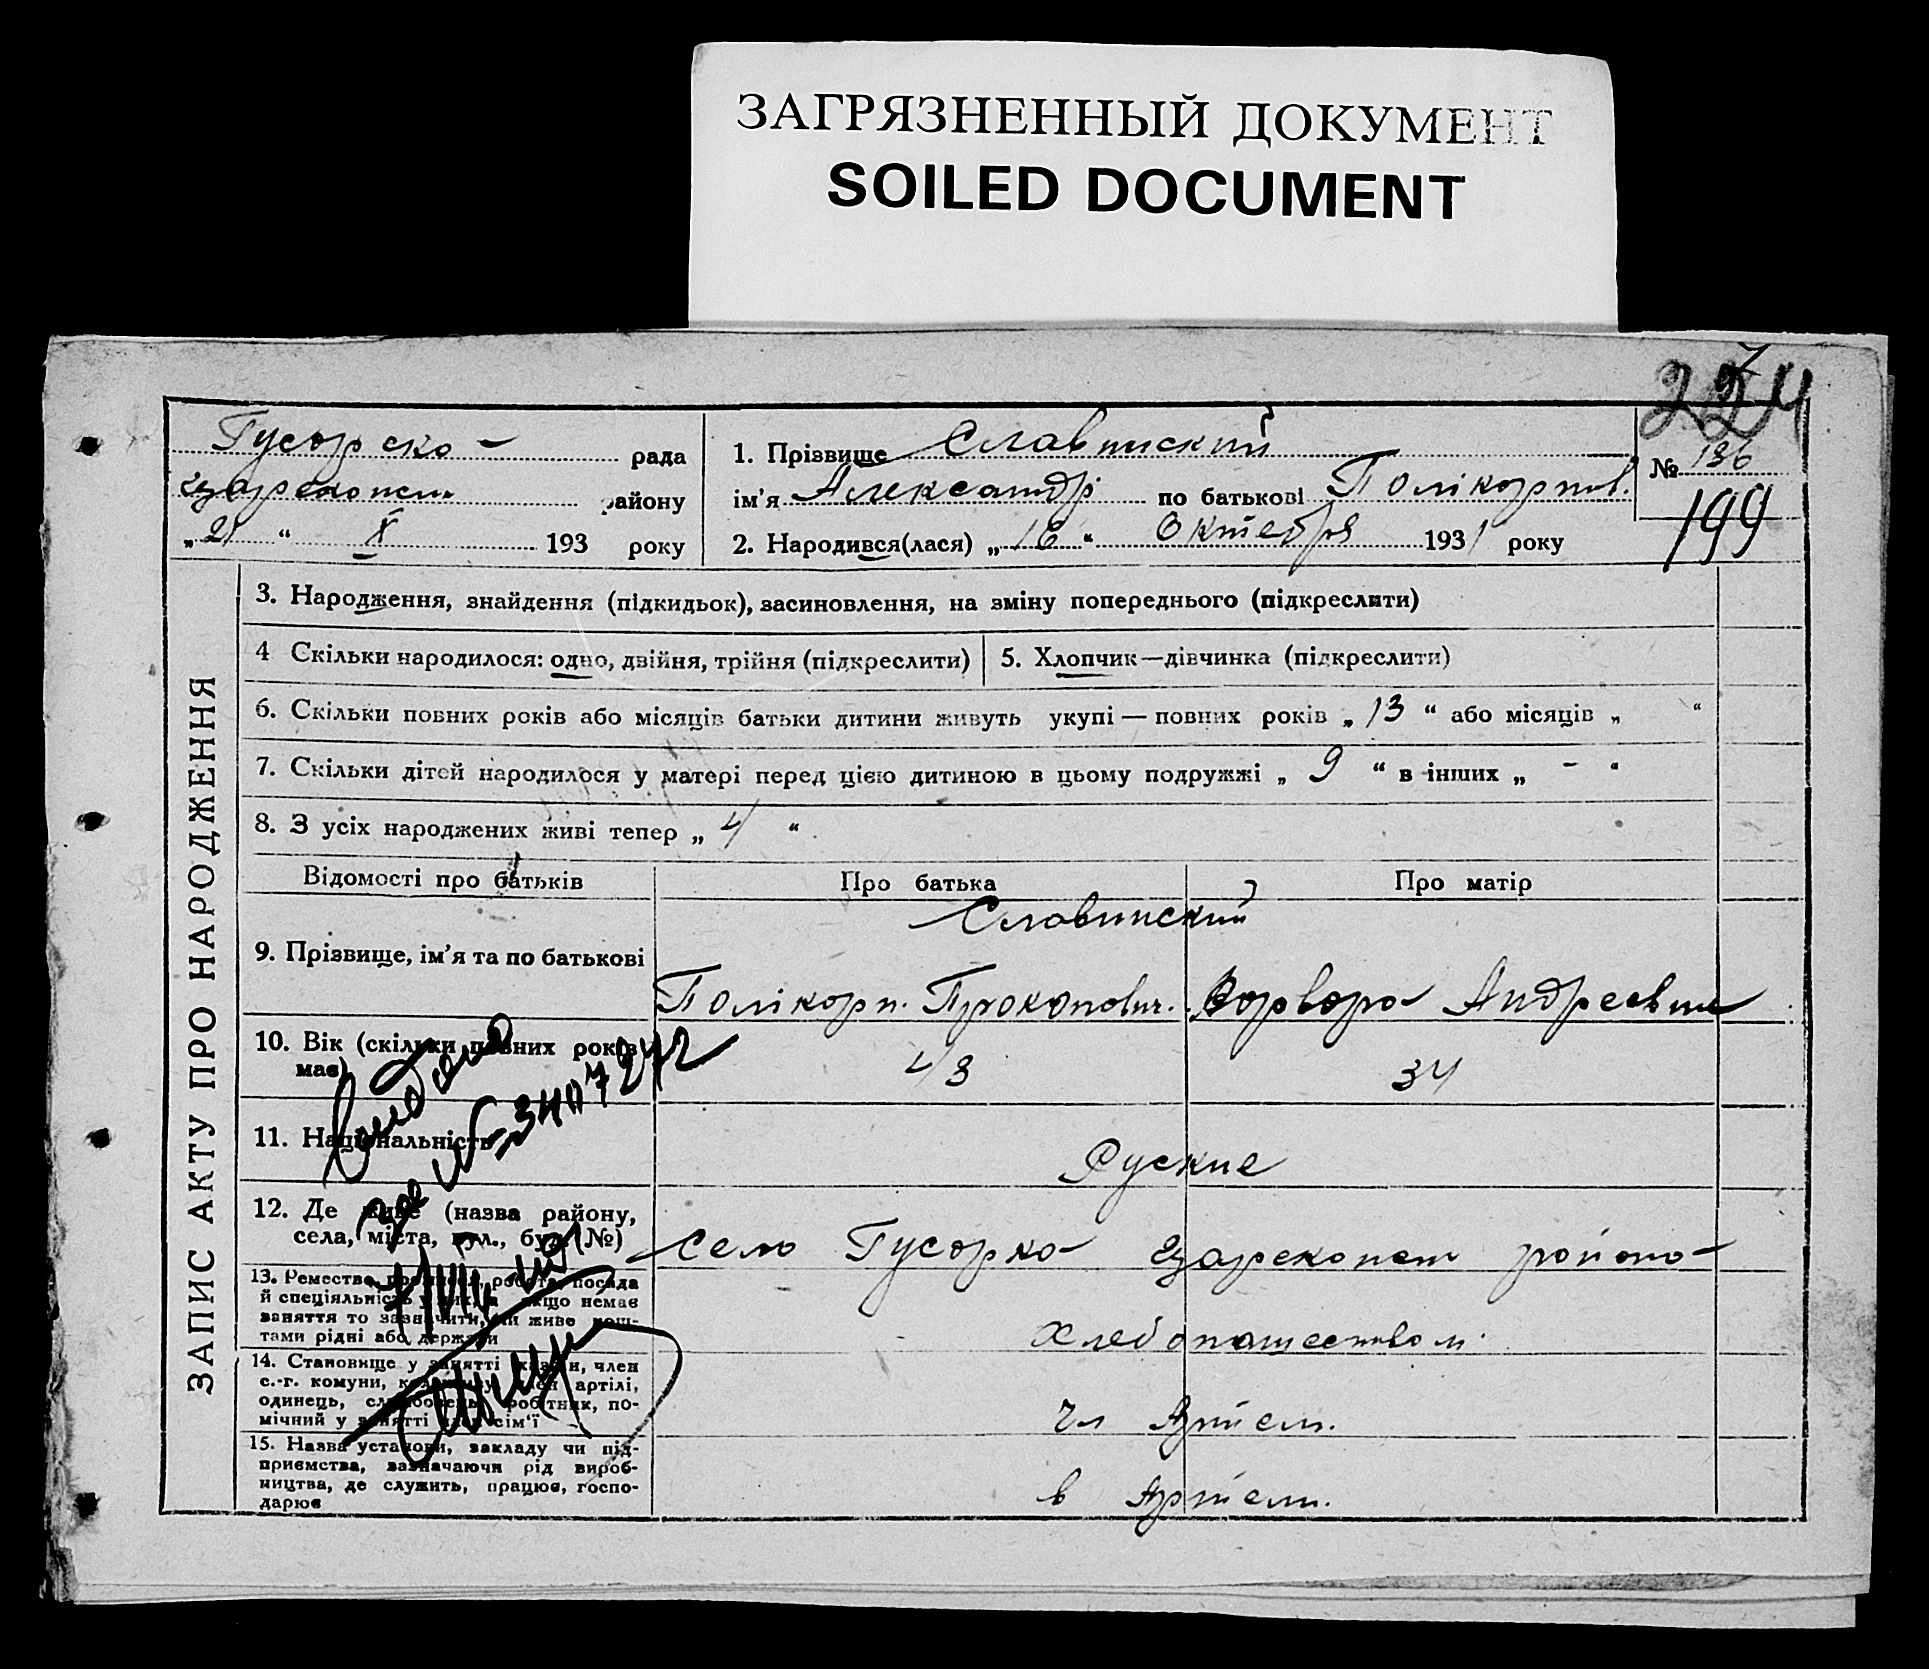 ЗАГРЯЗНЕННЫЙ ДОКУМЕНТ
SOILED DOCUMENT
Гусарско- рада
района
„21“ X 193 року
1. Прізвище Славинский
ім'я Александр по батькові Полікарпов.
2. Народився(лася) „16“ Октебря 1931 року
№ 136
199
ЗАПИС АКТУ ПРО НАРОДЖЕННЯ
3. Народження, знайдення (підкидьок), засиновлення, на зміну попереднього (підкреслити)
4 Скільки народилося: одно, двійня, трійня (підкреслити)
5. Хлопчик—дівчинка (підкреслити)
6. Скільки повних років або місяців батьки дитини живуть укупі — повних років „13“ або місяців „ “
7. Скільки дітей народилося у матері перед цією дитиною в цьому подружжі „9“ в інших „-“
8. З усіх народжених живі тепер „4“
Відомості про батьків
Про батька
Про матір
Славинский
9. Прізвище, ім'я та по батькові
Полікарп. Прокопович. Варвара Андреевна
10. Вік (скільки повних років має)
43
34
11. Національність
Руские
12. Де живе (назва району,
села, міста, вул., буд. №)
Село Гусарка района
13. Ремество, промисел, робота, посада
й спеціяльність якщо немає
заняття то зазначити, чи живе кош-
тами рідні або держави
Хлебопашеством.
14. Становище у занятті член
с.-г. комуни, артілі,
одинець, робітник, по-
мічний у занятті член сім'ї
чл Артели.
15. Назва установи, закладу чи під-
приємства, зазначаючи рід вироб-
ництва, де служить, працює, госпо-
дарює
в Артели.
№ 3407242